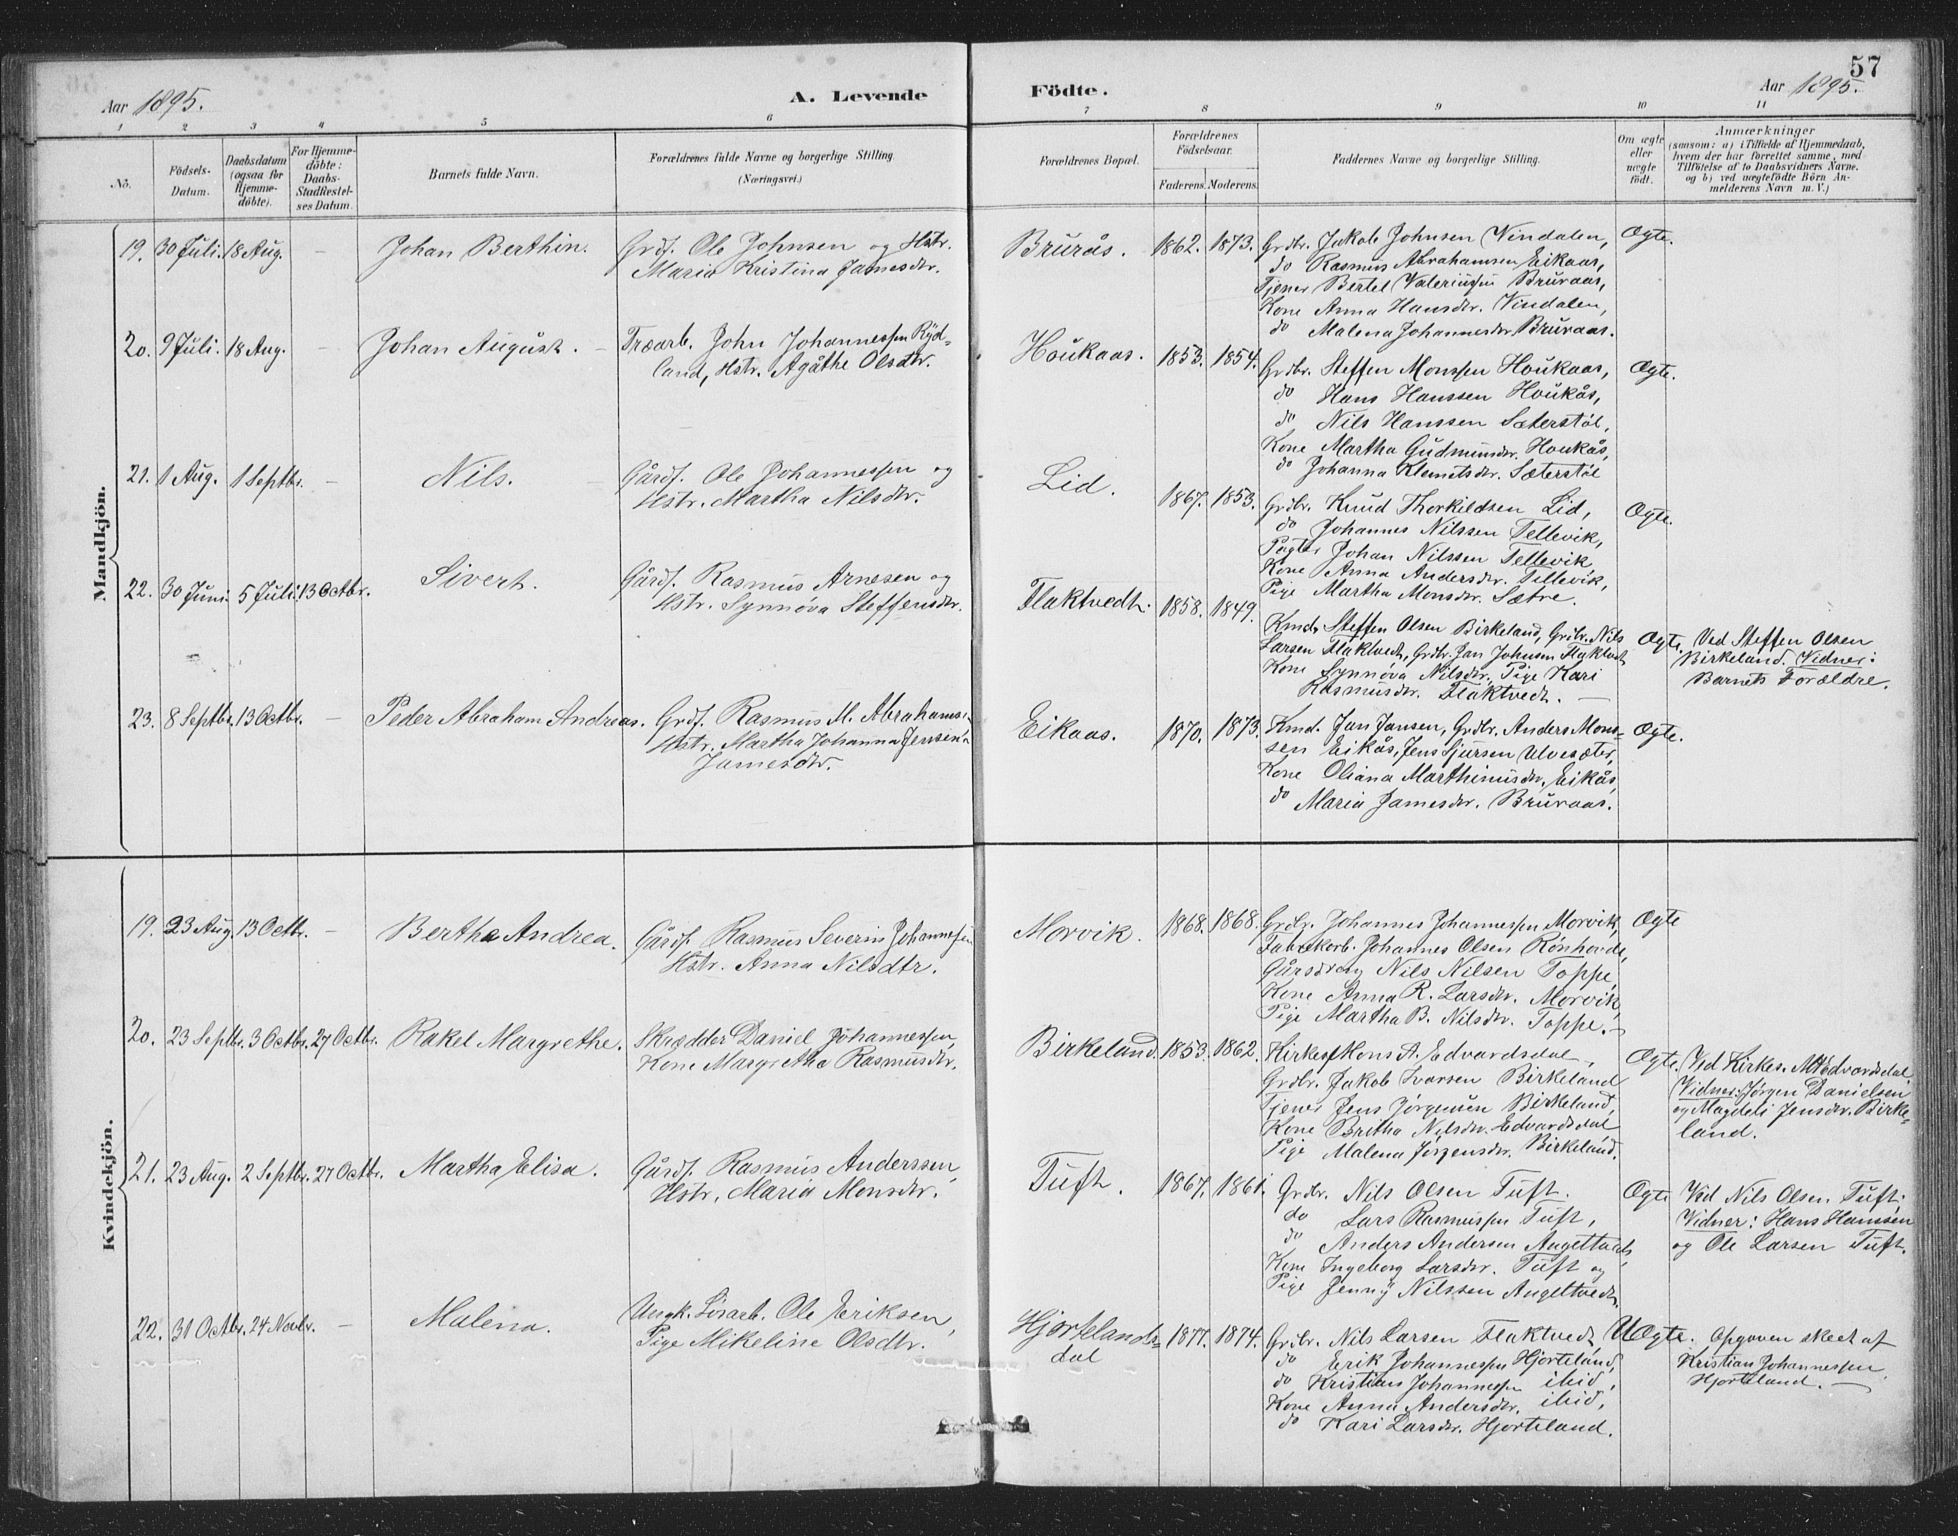 57
Aar 1895.
A. Levende Födte.
Aar 1895.
1 2 3 4 5 6 7 8 9 10 11
No.
Födsels-Datum.
Daabsdatum (ogsaa for Hjemme-döbte).
For Hjemme-döbte: Daabs-Stadfæstel-ses Datum.
Barnets fulde Navn.
Forældrenes fulde Navne og borgerlige Stilling
(Næringsvei.)
Forældrenes Bopæl.
Forældrenes Födselsaar.
Faderens. Moderens.
Faddernes Navne og borgerlige Stilling.
Om ægte eller uægte födt.
Anmærkninger
(saasom: a) i Tilfælde af Hjemmedaab, hvem der har forrettet samme, med Tilföielse af to Daabsvidners Navne. og b) ved uægtefödte Börn An-melderens Navn m. V.)
Mandkjön.
19. 30 Juli. 18 Aug. — Johan Berthin.
Grdf. Ole Johnsen og Hstr.
Maria Kristina Jamesdtr.
Brurås. 1862. 1873.
Grdbr. Jakob Johnsen Vindalen,
do Rasmus Abrahamsen Eikaas,
Tjener Bertel Valeriussen Bruraas,
Kone Anna Hansdtr. Vindalen,
do Malena Johannesdtr Bruraas.
Ogte.
20. 9 Juli. 18 Aug. — Johan August. —
Træarb. John Johannessen Ryd-
land, Hstr. Agathe Olsdtr.
Houkaas. 1853. 1854.
Grdbr. Steffen Monssen Houkaas,
do Hans Hanssen Houkås,
do Nils Hanssen Sæterstøl,
Kone Martha Gudmundsdr. Houkås,
do Johanna Klemetsdtr. Sæterstøl
Ægte.
21. 1 Aug. 1 Septbr. — Nils. —
Gårdf. Ole Johannessen og
Hstr. Martha Nilsdtr.
Lid. 1867. 1853.
Grdbr. Knud Thorkildsen Lid,
do Johannes Nilssen Tellevik,
Johan Nilssen Tellevik
Kone Anna Andersdtr. Tellevik,
Pige Martha Monsdtr. Sætre.
Ogte.
22. 30 Juni. 5 Juli. 13 Octbr. Sivert.
Gårdf. Rasmus Arnesen og
Hstr. Synnøva Steffensdtr.
Flaktvedt. 1858. 1849.
Kmd. Steffen Olsen Birkeland, Grdbr. Nils
Larsen Flaktvedt, Grdbr. Jan Johnsen Flaktvedt
Kone Synnøva Nilsdtr, Pige Kari
Rasmusdtr. Flaktvedt. —
Ogte.
Ved Steffen Olsen
Birkeland. Vidner:
Barnets Forældre.
23. 8 Septbr. 13 Octbr. — Peder Abraham Andreas.
Grdf. Rasmus M. Abrahams-
Hstr. Martha Johanna Jensina
Jamesdtr.
Eikaas. 1870. 1873.
Kmd. Jan Jansen, Grdbr. Anders Mons-
sen Eikås, Jens Sjursen Ulvesæter,
Kone Oliana Marthinusdtr, Eikås,
do Maria Jamesdtr. Bruraas.
Ogte.
Kvindekjön.
19. 23 Aug. 13 Octbr. — Bertha Andrea.
Gårdf. Rasmus Severin Johannesen
Hstr. Anna Nilsdtr.
Morvik. 1868. 1868.
Grdbr. Johannes Johannessen Morvik,
Fabrikarb. Johannes Olsen Rønhovde,
Gårsdreng Nils Nilsen Toppe,
Kone Anna R. Larsdtr. Morvik,
Pige Martha B. Nilsdtr. Toppe. —
Ogte
20. 23 Septbr. 3 Octbr. 27 Octbr. Rakel Margrethe.
Skrædder Daniel Johannessen,
Kone Margretha Rasmusdtr.
Birkeland. 1853. 1862.
Kirkes. Mons A. Edvardsdal,
Grdbr. Jakob Ivarsen Birkeland
Tjener Jens Jørgensen Birkeland,
Kone Britha Nilsdtr. Edvardsdal
Pige Malena Jørgensdtr. Birkeland.
Ogte.
Ved Kirkes. M. Edvardsdal,
Vidner: Jørgen Danielsen
og Magdeli Jensdtr. Birke-
land.
21. 23 Aug. 2 Septbr. 27 Octbr. Martha Elisa.
Gårdf. Rasmus Anderssen,
Hstr. Maria Monsdtr.
Tuft. 1867. 1861.
Grdbr. Nils Olsen Tuft.
do Lars Rasmussen Tuft,
do Anders Andersen Augeltvedt,
Kone Ingeborg Larsdtr. Tuft og
Pige Jenny Nilssen Augeltvedt.
Ogte
Ved Nils Olsen Tuft;
Vidner: Hans Hanssen
og Ole Larsen Tuft.
22. 31 Octbr. 24 Novbr. — Malena.
Ungk. Løsarb. Ole Eriksen,
Pige Mikeline Olsdtr.
Hjortelands-
dal
1877. 1874.
Grdbr. Nils Larsen Flaktvedt
do Erik Johannessen Hjorteland,
do Kristian Johannessen ibid,
Kone Anna Andersdtr. ibid,
do Kari Larsdtr. Hjorteland.
UOgte.
Opgaven skeet af
Kristian Johannessen
Hjorteland. —